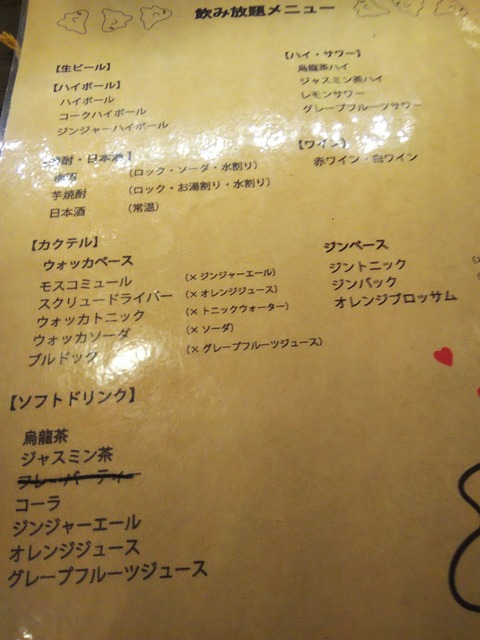 飲み放題メニュー
【生ビール】
【ハイボール】
ハイボール
コークハイボール
ジンジャーハイボール
【ハイ・サワー】
烏龍茶ハイ
ジャスミン茶ハイ
レモンサワー
グレープフルーツサワー
焼酎・日本酒】
(ロック・ソーダ・水割り)
芋焼酎 (ロック・お湯割り・水割り)
日本酒 (常温)
【ワイン】
赤ワイン・白ワイン
【カクテル】
ウォッカベース
モスコミュール (× ジンジャーエール)
スクリュードライバー (× オレンジジュース)
ウォッカトニック (× トニックウォーター)
ウォッカソーダ (× ソーダ)
ブルドック (× グレープフルーツジュース)
ジンベース
ジントニック
ジンバック
オレンジブロッサム
【ソフトドリンク】
烏龍茶
ジャスミン茶
コーラ
ジンジャーエール
オレンジジュース
グレープフルーツジュース